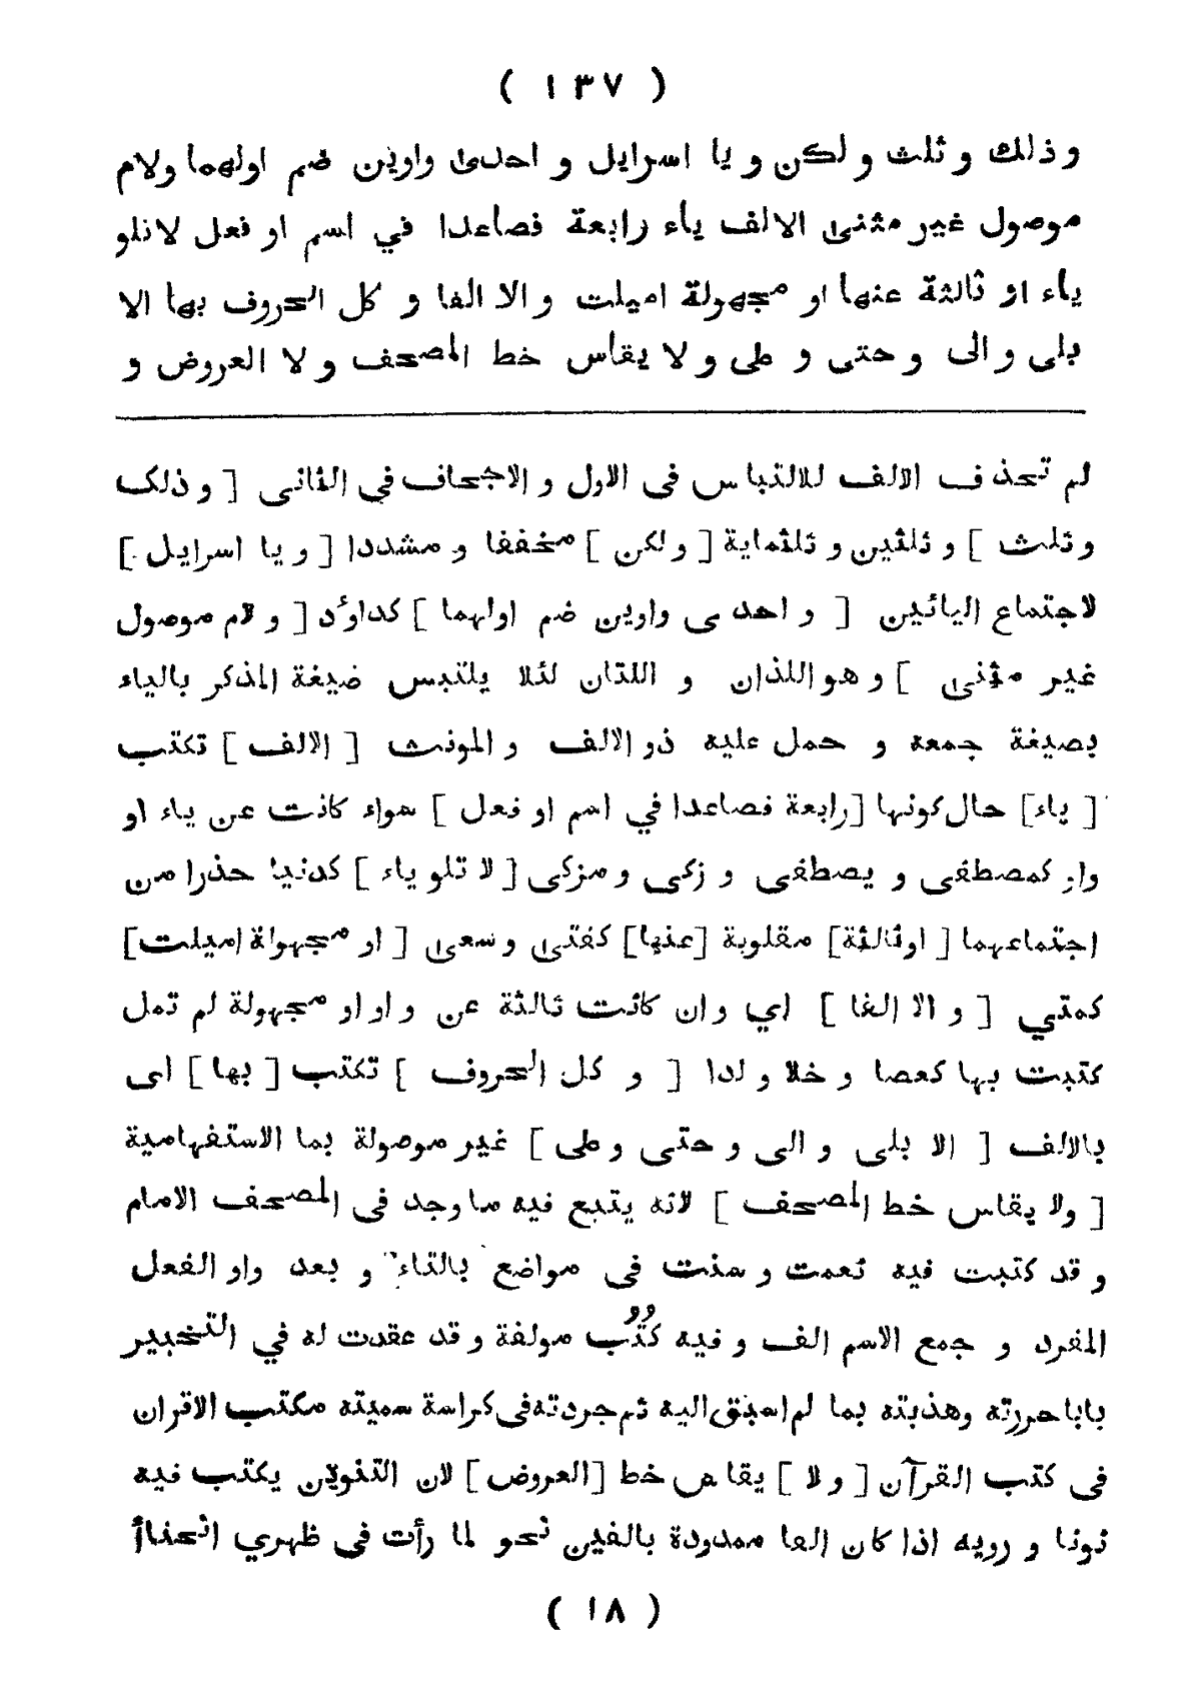 ( ١٣٧ )
و ذلك و ثلث و لكن و يا اسرايل و احدى واوين ضم اولهما ولام
موصول غير مثنى الالف ياء رابعة فصاعدا في اسم او فعل لاتلو
ياء او ثالثة عنها او مجهولة اميلت و الا الفا و كل الحروف بها الا
بلى و الى و حتى و على و لا يقاس خط المصحف و لا العروض و
لم تحذف الالف للالتباس فى الاول و الاجحاف في الثانى [ و ذلك
و ثلث ] و ثلثين و ثلثماية [ و لكن ] مخففا و مشددا [ و يا اسرايل ]
لاجتماع اليائين [ و احدى واوين ضم اولهما ] كداوٗد [ و لام موصول
غير مثنى ] و هو اللذان و اللتان لئلا يلتبس ضيغة المذكر بالياء
بصيغة جمعه و حمل عليه ذو الالف و المونث [ الالف ] تكتب
[ ياء] حال كونها [رابعة فصاعدا في اسم او فعل ] سواء كانت عن ياء او
واو كمصطفى و يصطفى و زكى و مزكى [ لا تلو ياء ] كدنيا حذرا من
اجتماعهما [ اوثالثة] مقلوبة [عنها] كفتى و سعى [ او مجهولة اميلت]
كمتي [ و الا الفا ] اي و ان كانت ثالثة عن واو او مجهولة لم تمل
كتبت بها كعصا و خلا و لدا [ و كل الحروف ] تكتب [ بها ] اى
بالالف [ الا بلى و الى و حتى و على ] غير موصولة بما الاستفهامية
[ ولا يقاس خط المصحف ] لانه يتبع فيه ما وجد فى المصحف الامام
و قد كتبت فيه نعمت و سنت فى مواضع بالتاء و بعد واو الفعل
المفرد و جمع الاسم الف و فيه كُتُب مولفة و قد عقدت له في التخبير
بابا حررته وهذبته بما لم اسبق اليه ثم جردته فى كراسة سميته مكتب الاقران
فى كتب القرآن [ و لا ] يقاس خط [العروض] لان التنوين يكتب فيه
نونا و رويه اذا كان الفا ممدودة بالفين نحو لما رأت فى ظهري انحناأ
( ١٨ )